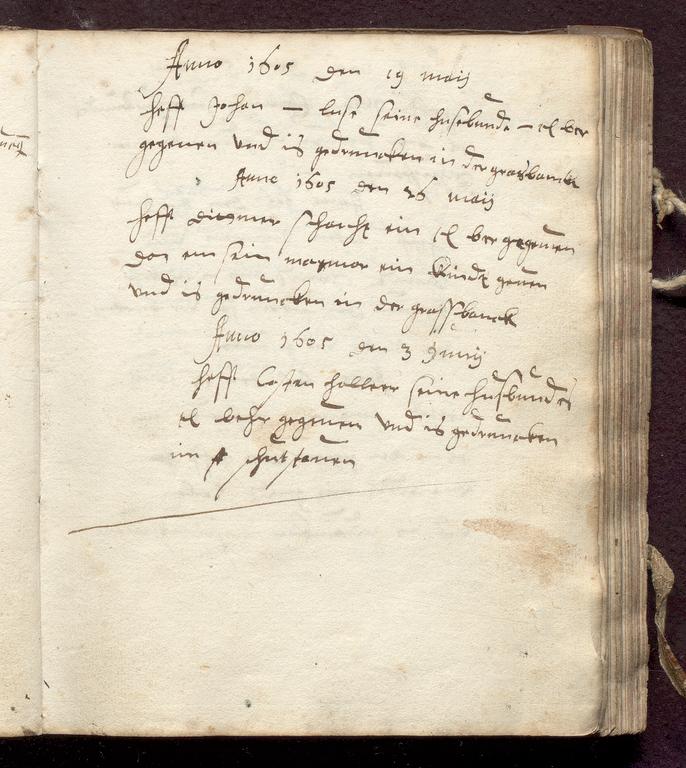 Anno 1605 den 19 maij
heff Johan – luse seine husebunde – El ber
gegeuen vnd is gedruncken in der grasbanck
Anno 1605 den 26 maij
hefft ditmer schacht ein El ber gegeuen
don em sein ein kindt geuen
vnd is gedruncken in der grassbanck
Anno 1605 den 3 Junij
heff Casten holleer seine husbunde
El behr gegeuen vnd is gedruncken
im schutstauen